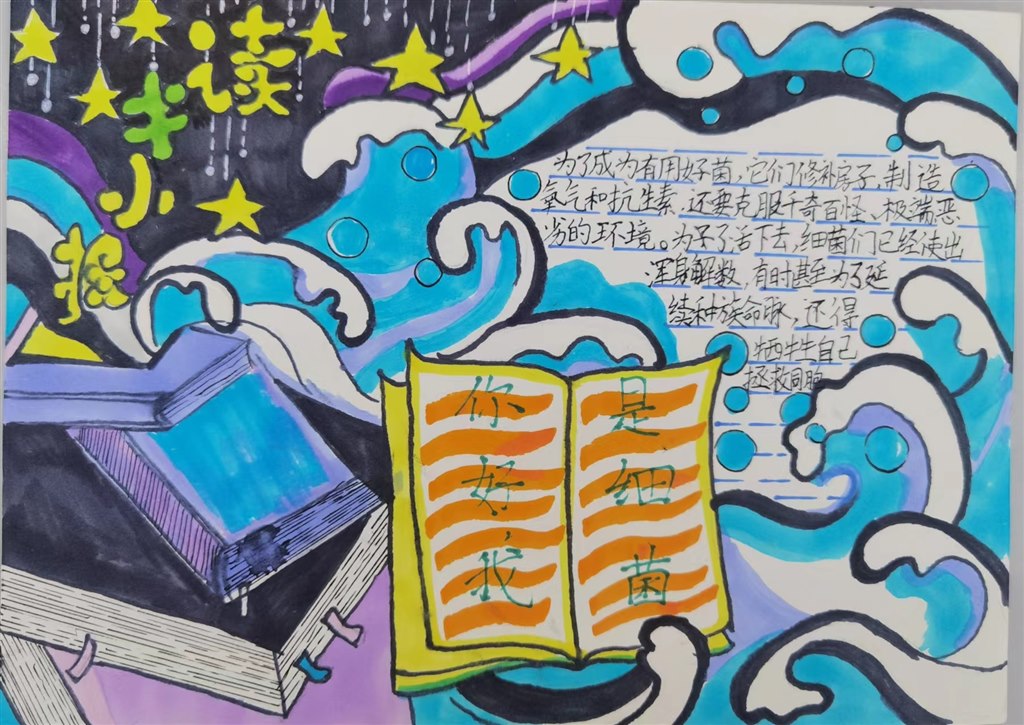 读书小报
为了成为有用好菌，它们修补房子，制造
氧气和抗生素，还要克服千奇百怪、极端恶
劣的环境。为了活下去，细菌们已经使出
浑身解数，有时甚至为了延
续种族命脉，还得
牺牲自己
拯救同胞
你好，我
是细菌